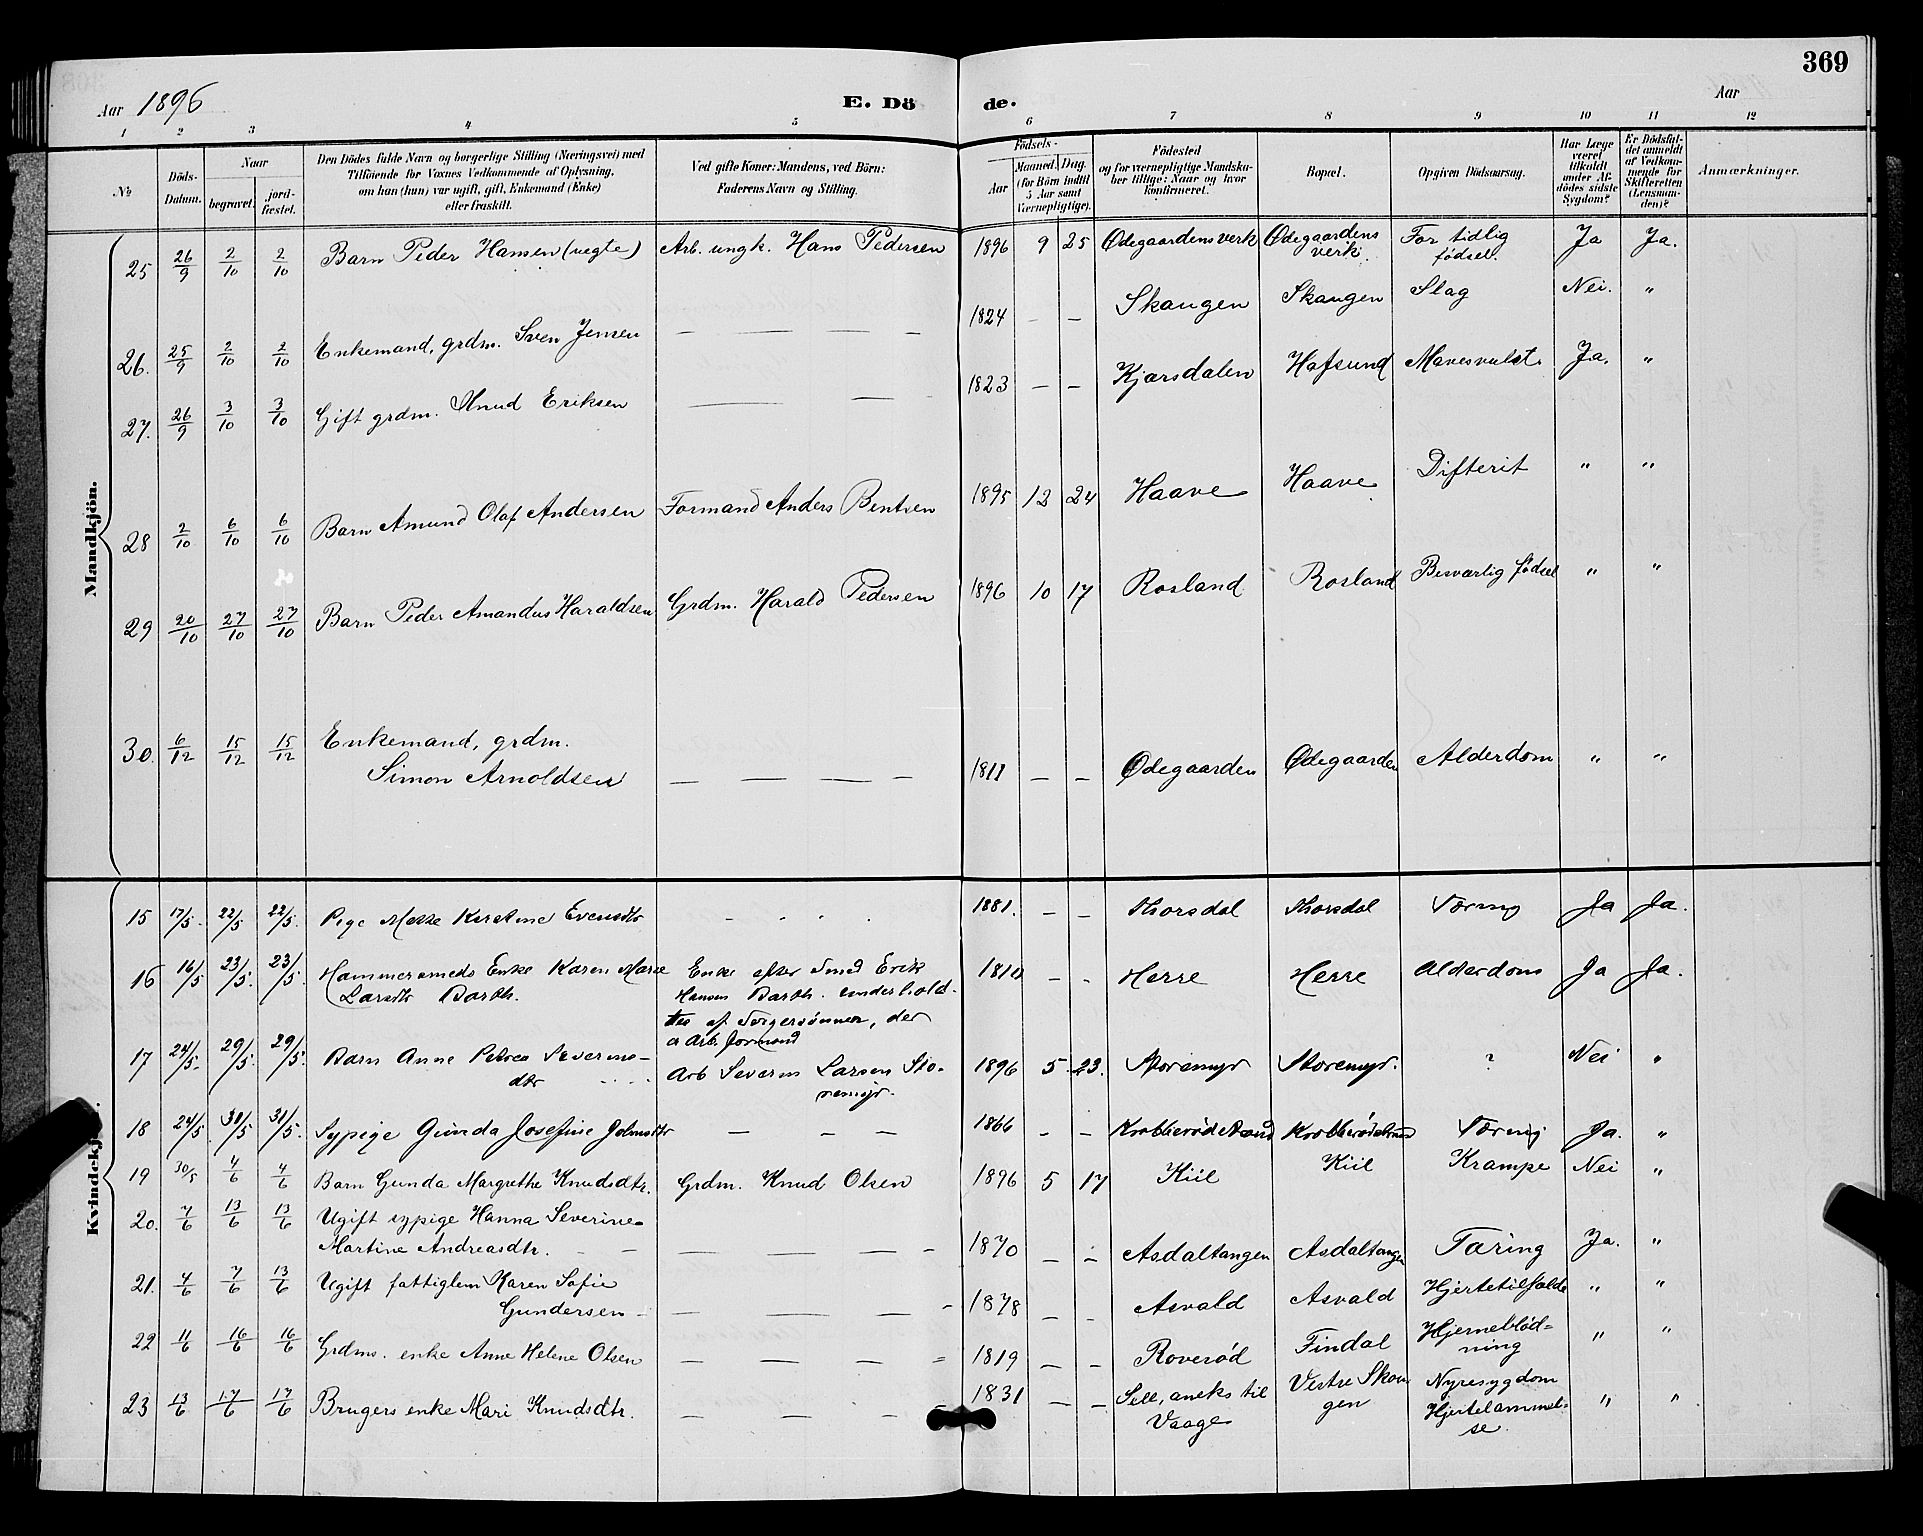 369
Aar 1896
E. Döde.
Aar
1 2 3 4 5 6 7 8 9 10 11 12
No
Döds-Datum.
Naar
begravet.
jord-fæstet.
Den Dödes fulde Navn og borgerlige Stilling (Næringsvei) med
Tilföiende for Voxnes Vedkommende af Oplysning,
om han (hun) var ugift, gift, Enkemand (Enke)
eller fraskilt.
Ved gifte Koner: Mandens, ved Börn:
Faderens Navn og Stilling.
Födsels-
Aar
Maaned. Dag.
(for Börn indtil
5 Aar samt
Værnepligtige).
Födested
og for værnepligtige Mandska-
ber tillige: Naar og hvor
konfirmeret.
Bopæl.
Opgiven Dödsaarsag.
Har Læge
været
tilkaldt
under Af-
dödes sidste
Sygdom?
Er Dödsfal-
det anmeldt
af Vedkom-
mende for
Skifteretten
(Lensman-
den)?
Anmærkninger.
Mandkjön.
25 26/9 2/10 2/10 Barn Peder Hansen (uegte) Arb. ungk. Hans Pedersen 1896 9 25 Ødegaardensverk Ødegaardens verk. For tidlig fødsel. Ja Ja.
26. 25/9 2/10 2/10 Enkemand, grdm. Sven Jensen — — — — 1824 - - Skaugen Skaugen Slag Nei. "
27. 26/9 3/10 3/10 Gift grdm. Knud Eriksen — — — 1823 — — Kjørsdalen Hafsund Mavesvulst. Ja. "
28 2/10 6/10 6/10 Barn Amund Olaf Andersen Formand Anders Bentsen 1895 12 24 Haave Haave Difterit " "
29 20/10 27/10 27/10 Barn Peder Amandus Haraldsen Grdm. Harald Pedersen 1896 10 17 Rosland Rosland Besværlig fødsel " "
30. 6/12 15/12 15/12 Enkemand, grdm.
Simon Arnoldsen — — — — 1811 — — Ødegaarden Ødegaarden Alderdom " "
Kvindekj
15 17/5. 22/5 22/5. Pige Kirstine Evensdtr - - - - 1881. — — Thorsdal Thorsdal Tæring Ja Ja.
16 16/5 23/5. 23/5. Hammersmeds Enke Karen Marie
Larsdtr Barth. Enke efter Smed Erik
Hansen Barth. underhold-
tes af Svigersønnen, der
er Arb. formand 1810 - - Herre Herre Alderdom Ja Ja.
17 24/5. 29/5. 29/5. Barn Anne Petrea Severins-
dtr Arb Severin Larsen Sto-
remyr. 1896 5. 23. Storemyr Storemyr. ? Nei "
18 24/5. 31/5 31/5. Sypige Gunda Josefine Johnsdtr — — — 1866 - - Tæring Ja. "
19 30/5 4/6 4/6 Barn Gunda Margrethe Knudsdtr. Grdm. Knud Olsen 1896 5 17 Kiil Kiil Krampe Nei "
20. 7/6 13/6 13/6 Ugift sypige Hanna Severine
Martine Andreasdtr. — — — — 1870 — - Asdaltangen Asdaltangen Tæring Ja. "
21. 4/6 7/6 13/6 Ugift fattiglem Karen Sofie
Gundersen — — — - 1878 — - Asvald Asvald Hjertetilfælde " "
22 11/6 16/6 16/6 Grdms. enke Anne Helene Olsen — — — = 1819 — - Roverød Findal Hjerneblød=
ning " "
23 13/6 17/6 17/6 Brugers enke Mari Knudsdtr. — — — - 1831 — — Sell, aneks til
Vaage Vestre Skau
gen Nyresygdom
Hjertelammel-
se. " "